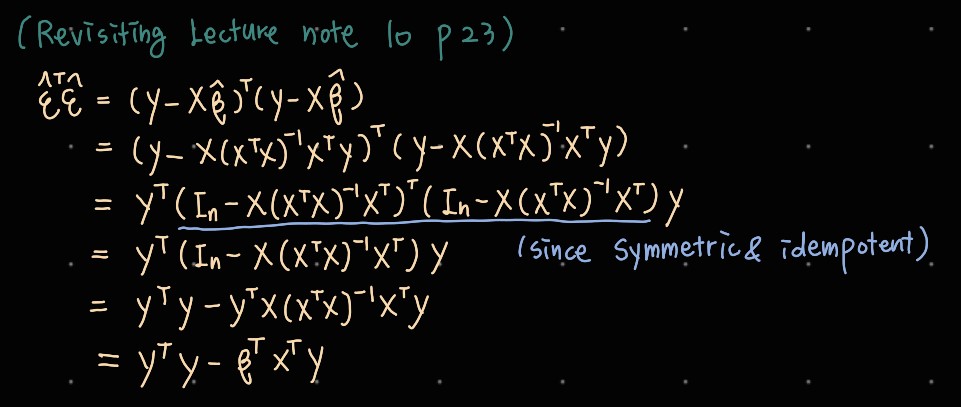 (Revisiting Lecture note 10 p 23)
ε̂ᵀε̂ = (y - Xβ̂)ᵀ(y - Xβ̂)
= (y - X(XᵀX)⁻¹Xᵀy)ᵀ(y - X(XᵀX)⁻¹Xᵀy)
= yᵀ(Iₙ - X(XᵀX)⁻¹Xᵀ)ᵀ(Iₙ - X(XᵀX)⁻¹Xᵀ)y
= yᵀ(Iₙ - X(XᵀX)⁻¹Xᵀ)y (since symmetric & idempotent)
= yᵀy - yᵀX(XᵀX)⁻¹Xᵀy
= yᵀy - βᵀXᵀy